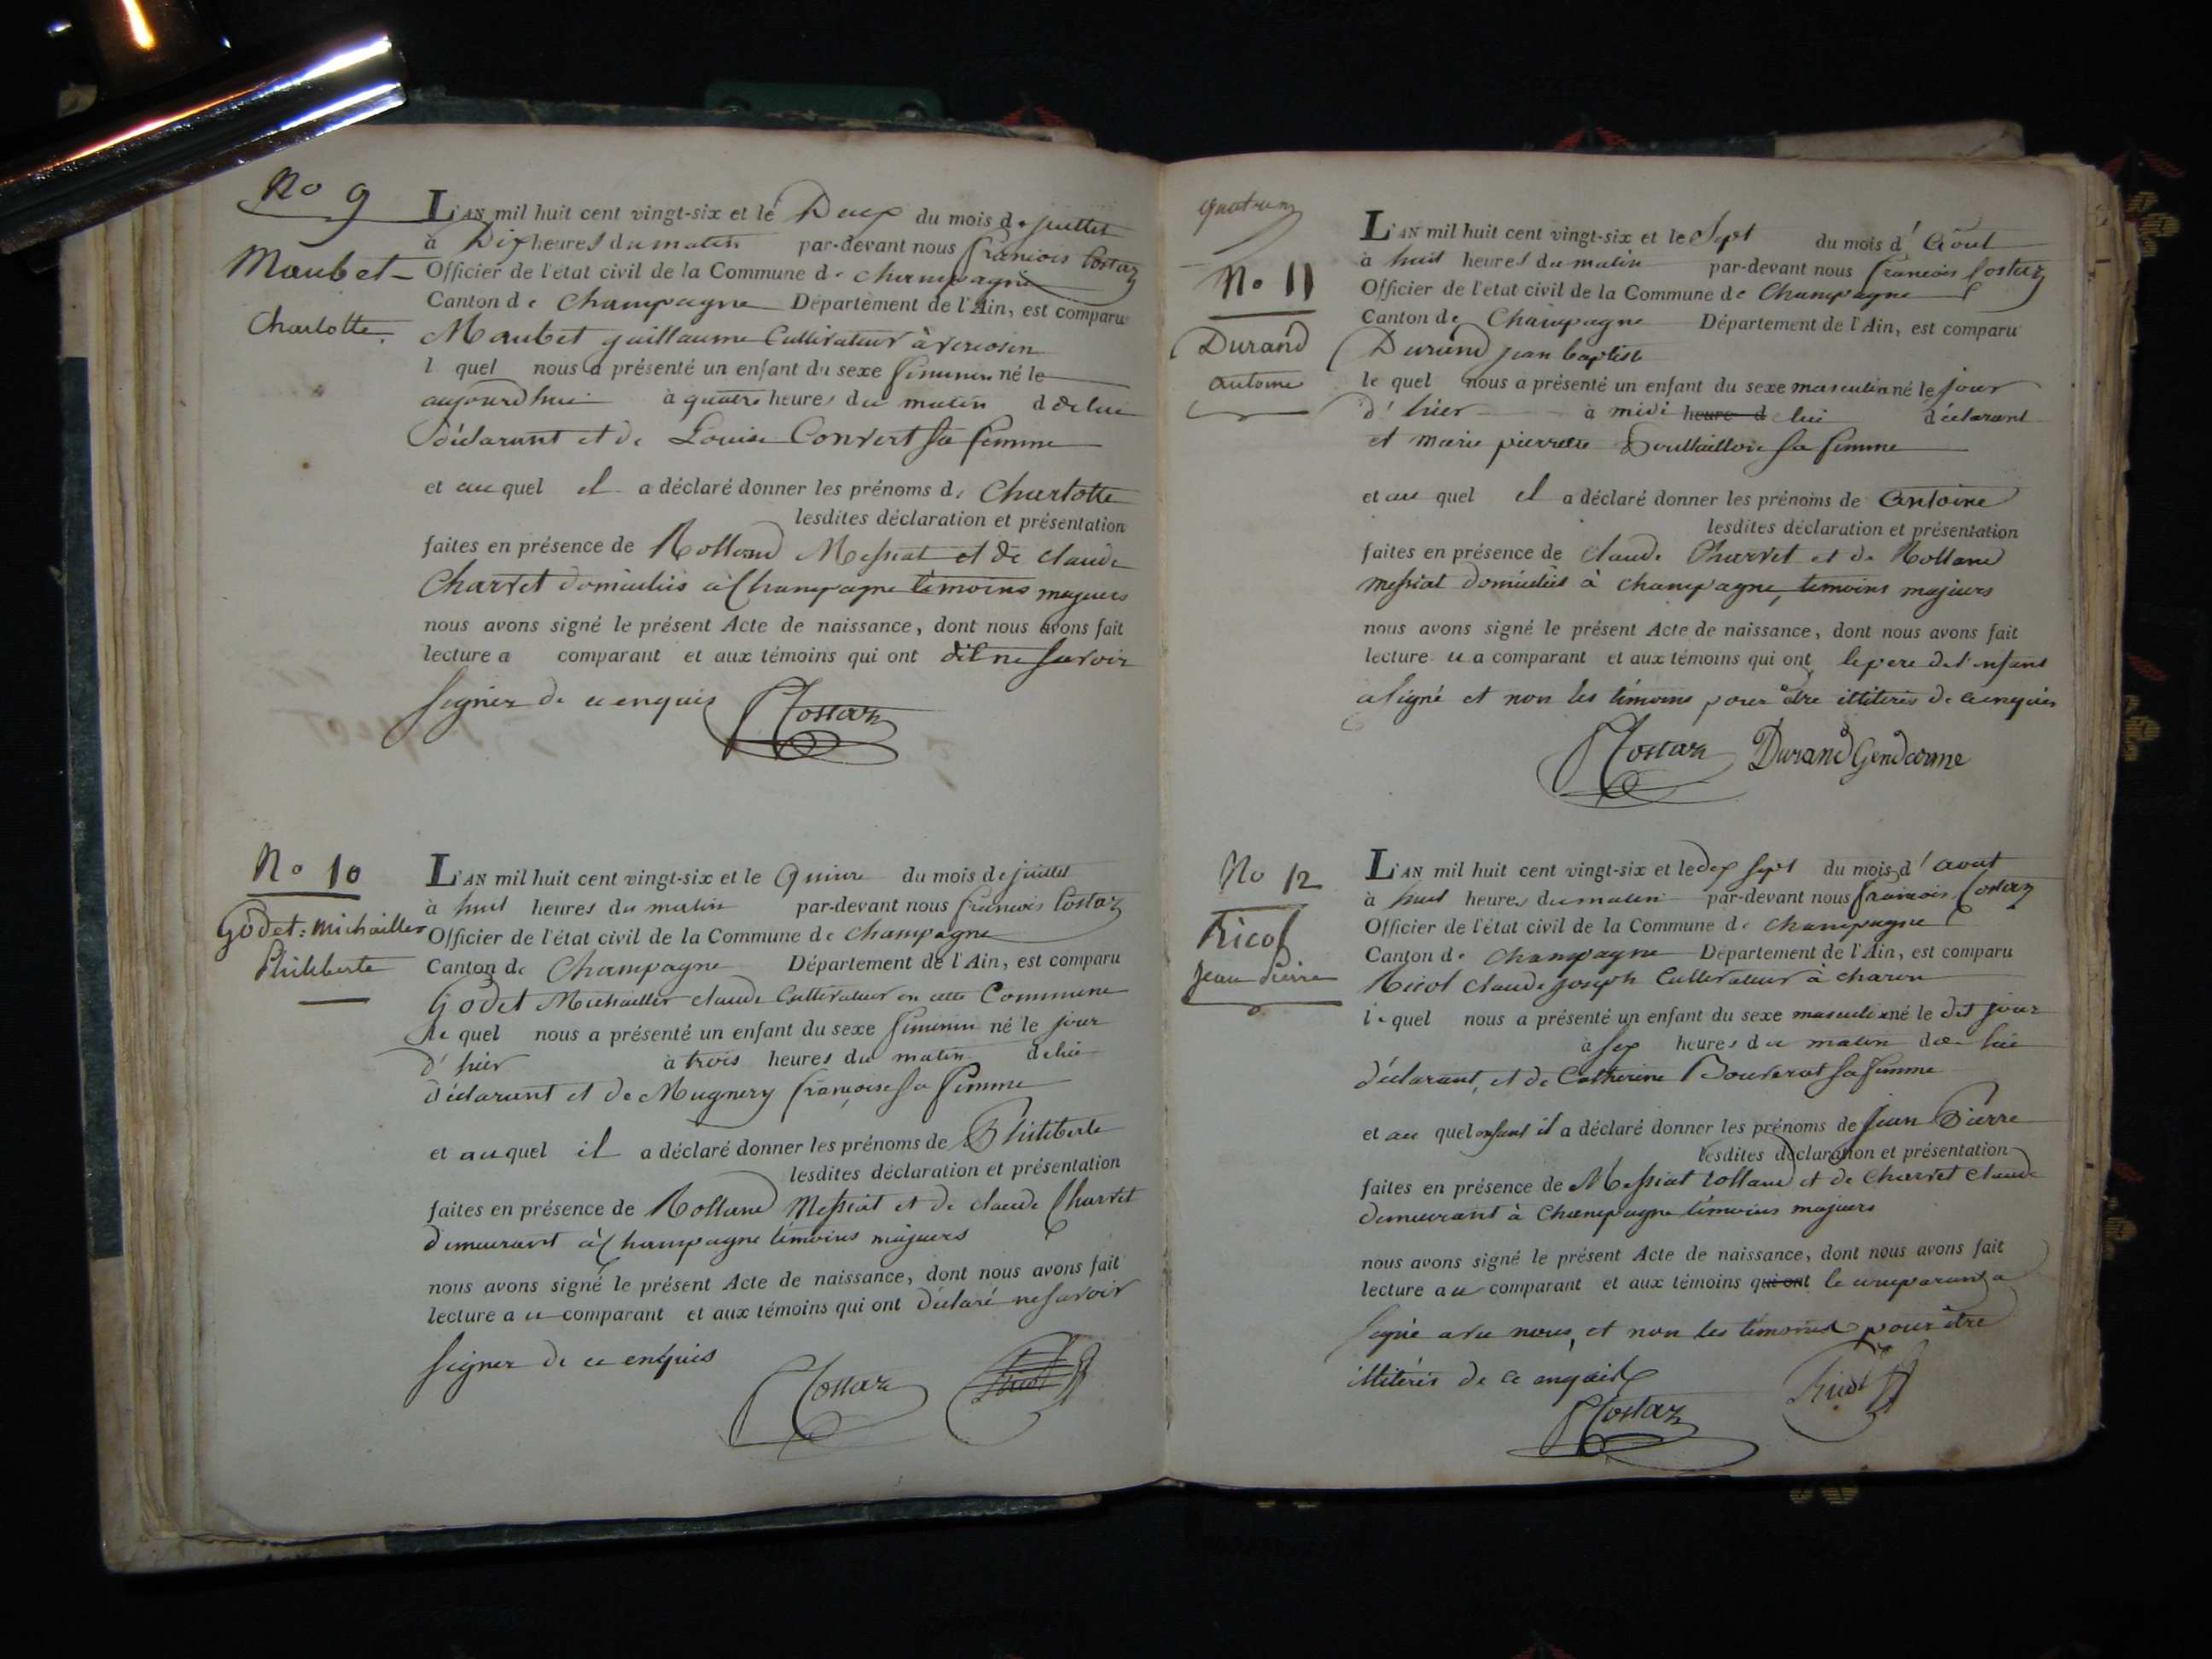 No 9
Maubet
Charlotte.
L'AN mil huit cent vingt-six et le Deux du mois de juillet
à Dix heures du matin par-devant nous françois Costaz
Officier de l'état civil de la Commune de champagne
Canton de Champagne Département de l'Ain, est comparu
Maubet guillaume Cultivateur à
le quel nous a présenté un enfant du sexe féminin né le
aujourdhui à quatre heures du matin de lui
déclarant et de Louise Convert sa femme
et au quel il a déclaré donner les prénoms de Charlotte
lesdites déclaration et présentation
faites en présence de Rolland Messiat et de claude
Charvet domiciliés à Champagne témoins majeurs
nous avons signé le présent Acte de naissance, dont nous avons fait
lecture a comparant et aux témoins qui ont dit ne savoir
signer de ce enquis Costaz
No 10
Godet: michaillez
Philiberte
L'AN mil huit cent vingt-six et le Quinze du mois de juillet
à huit heures du matin par-devant nous françois Costaz
Officier de l'état civil de la Commune de champagne
Canton de Champagne Département de l'Ain, est comparu
Godet Michaillez claude Cultivateur en cette Commune
le quel nous a présenté un enfant du sexe féminin né le jour
d'hier à trois heures du matin de lui
déclarant et de Mugnery françoise sa femme
et au quel il a déclaré donner les prénoms de Philiberte
lesdites déclaration et présentation
faites en présence de Rolland Messiat et de claude Charvet
demeurant à Champagne témoins majeurs
nous avons signé le présent Acte de naissance, dont nous avons fait
lecture a u comparant et aux témoins qui ont déclaré ne savoir
signer de ce enquis
Costaz
No 11
Durand
antoine
L'AN mil huit cent vingt-six et le Sept du mois d'Août
à huit heures du matin par-devant nous françois Costaz
Officier de l'état civil de la Commune de Champagne
Canton de Champagne Département de l'Ain, est comparu
Durand jean baptiste
le quel nous a présenté un enfant du sexe masculin né le jour
d'hier à midi heure d lui déclarant
et marie pierrette sa femme
et au quel il a déclaré donner les prénoms de Antoine
lesdites déclaration et présentation
faites en présence de claude Charvet et de Rolland
messiat domiciliés à champagne, témoins majeurs
nous avons signé le présent Acte de naissance, dont nous avons fait
lecture u a comparant et aux témoins qui ont le pere de l'enfant
a signé et non les témoins pour être illiterés de ce enquis
Costaz Durand Gendarme
No 12
Ricol
Jean Pierre
L'AN mil huit cent vingt-six et le dix sept du mois d'aout
à huit heures du matin par-devant nous françois Costaz
Officier de l'état civil de la Commune de champagne
Canton de Champagne Département de l'Ain, est comparu
Ricol claude joseph Cultivateur à
le quel nous a présenté un enfant du sexe masculin né le dit jour
à six heures du matin de lui
déclarant, et de Catherine Bouverat sa femme
et au quel enfant il a déclaré donner les prénoms de Jean Pierre
lesdites déclaration et présentation
faites en présence de Messiat rolland et de Charvet claude
demeurant à Champagne témoins majeurs
nous avons signé le présent Acte de naissance, dont nous avons fait
lecture au comparant et aux témoins qui ont le comparant a
signé avec nous, et non les témoins pour être
illiterés de ce enquis
Costaz Ricol